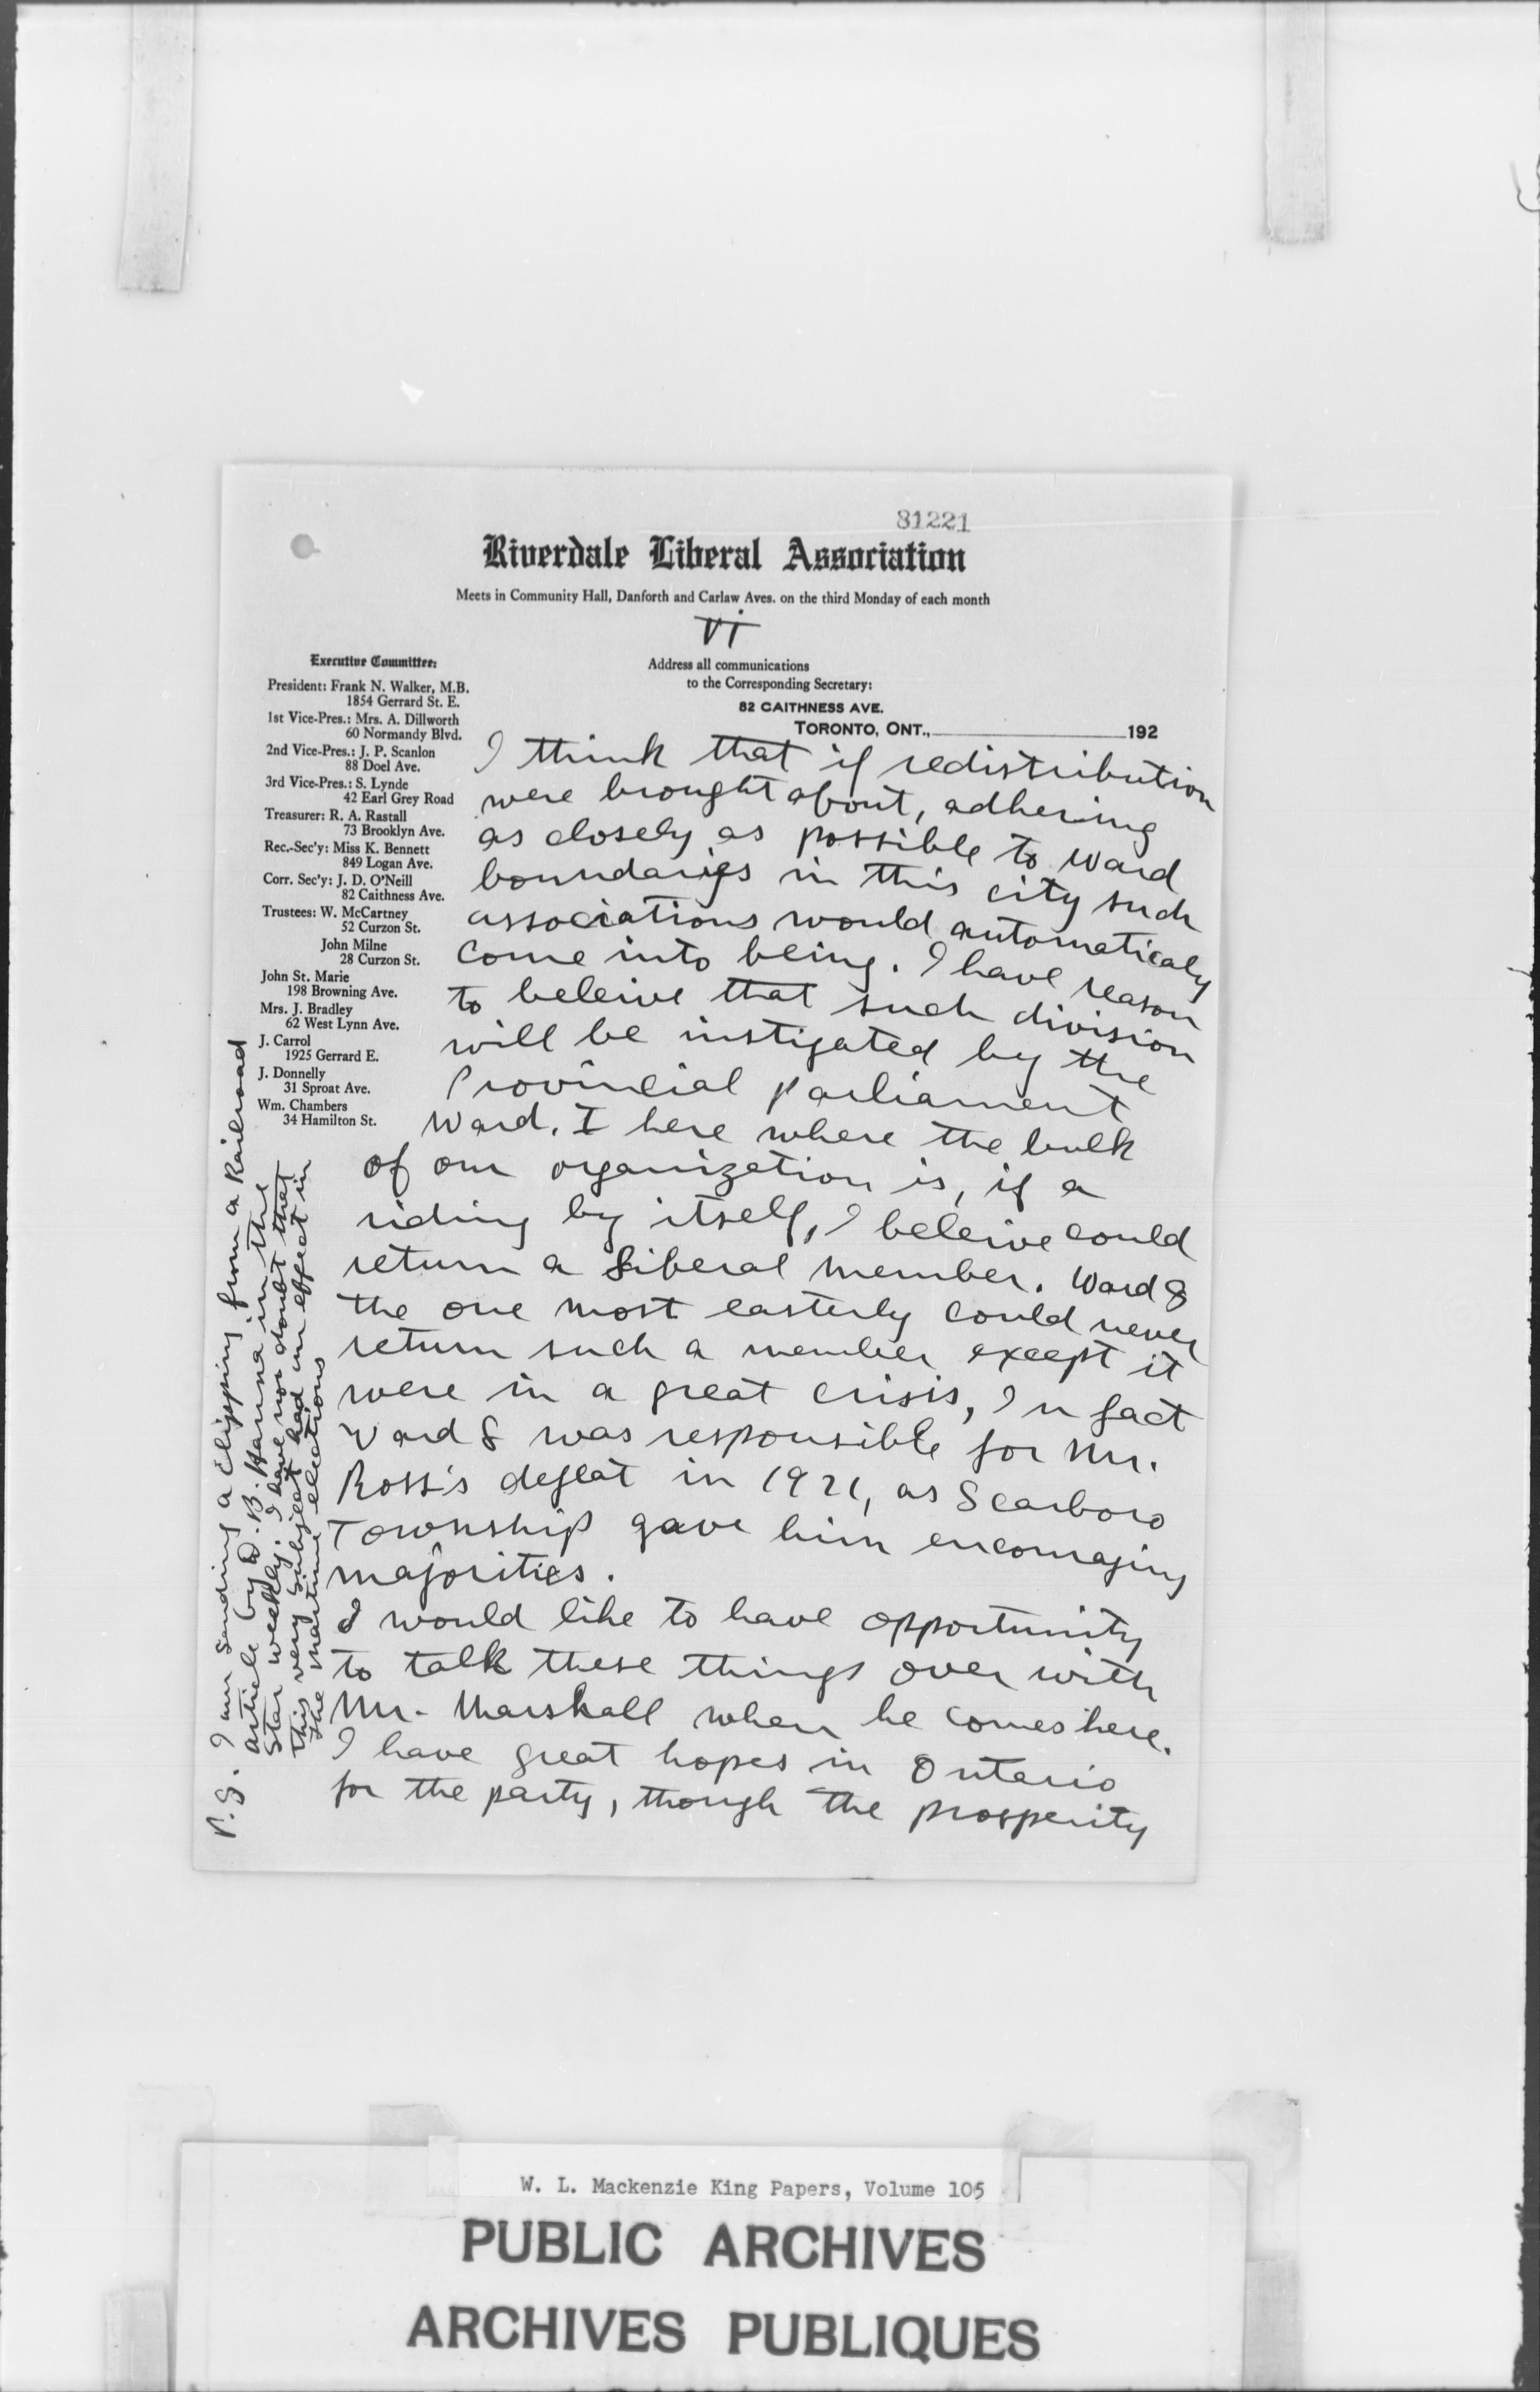 81221
Riverdale Liberal Association
Meets in Community Hall, Danforth and Carlaw Aves. on the third Monday of each month
VI
Executive Committee:
President: Frank N. Walker, M.B.
1854 Gerrard St. E.
1st Vice-Pres.: Mrs. A. Dillworth
60 Normandy Blvd.
2nd Vice-Pres.: J. P. Scanlon
88 Doel Ave.
3rd Vice-Pres.: S. Lynde
42 Earl Grey Road
Treasurer: R. A. Rastall
73 Brooklyn Ave.
Rec.-Sec'y: Miss K. Bennett
849 Logan Ave.
Corr. Sec'y: J. D. O'Neill
82 Caithness Ave.
Trustees: W. McCartney
52 Curzon St.
John Milne
28 Curzon St.
John St. Marie
198 Browning Ave.
Mrs. J. Bradley
62 West Lynn Ave.
J. Carrol
1925 Gerrard E.
J. Donnelly
31 Sproat Ave.
Wm. Chambers
34 Hamilton St.
Address all communications
to the Corresponding Secretary:
82 CAITHNESS AVE.
TORONTO, ONT., 192
I think that if redistribution
were brought about, adhering
as closely as possible to Ward
boundaries in this city such
associations would automaticaly
come into being. I have reason
to beleive that such division
will be instigated by the
Provincial Parliament
Ward. I here where the bulk
of our organization is, if a
riding by itself, I beleive could
return a Liberal member. Ward 8
the one most easterly could never
return such a member except it
were in a great crisis, In fact
Ward 8 was responsible for Mr.
Ross's defeat in 1921, as Scarboro
Township gave him encouraging
majorities.
I would like to have opportunity
to talk these things over with
Mr. Marshall when he comes here.
I have great hopes in Ontario
for the party, though the prosperity
P.S. I am sending a clipping from a Railroad
article by D. B. Hanna in the
Star weekly. I have no doubt that
this very subject had an effect in
the maritime elections
W. L. Mackenzie King Papers, Volume 105
PUBLIC ARCHIVES
ARCHIVES PUBLIQUES